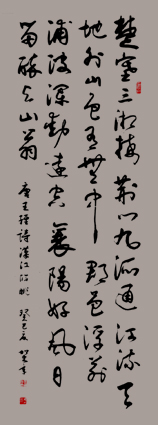 楚塞三湘接荆门九派通江流天
地外山色有無中郡邑浮前
浦波澜動遠空襄陽好風日
留醉与山翁
唐王維詩漢江臨眺 癸巳夏